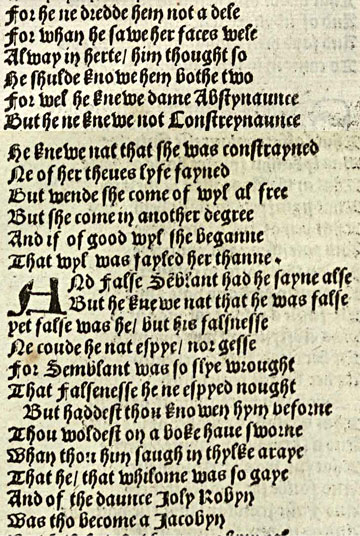 For he ne dredde hem not a dele
For whan he sawe her faces wele
Alway in herte/ him thought so
He shulde knowe hem bothe two
For wel he knewe dame Abstynaunce
But he ne knewe not Constreynaunce
He knewe nat that she was constrayned
Ne of her theues lyfe fayned
But wende she come of wyl al free
But she come in another degree
And if of good wyl she beganne
That wyl was fayled her thanne.
ANd Falsse Sēblant had he sayne alse
But he knewe nat that he was false
yet false was he/ but his falsnesse
Ne coude he nat espye/ nor gesse
For Semblant was so slye wrought
That Falsenesse he ne espyed nought
But haddest thou knowen hym beforne
Thou woldest on a boke haue sworne
Whan thou him saugh in thylke araye
That he/ that whilome was so gaye
And of the daunce Joly Robyn
Was tho become a Jacobyn